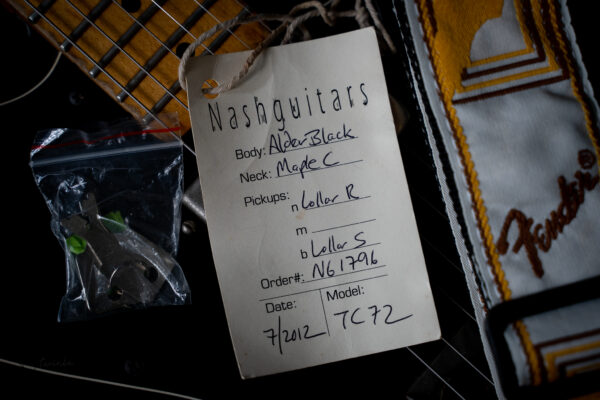 Nashguitars
Body: Alder Black
Neck: Maple C
Pickups: n Lollar R
m
b Lollar S
Order#: NG1796
Date: Model:
7/2012 TC72
Fender®